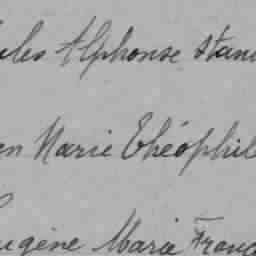 ules Alphonse Stan
en Marie Théophil
ugène Marie Franç